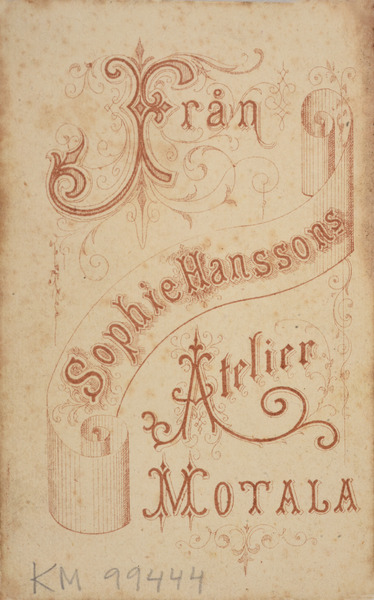 Från
Sophie Hanssons
Atelier
MOTALA
KM 99444